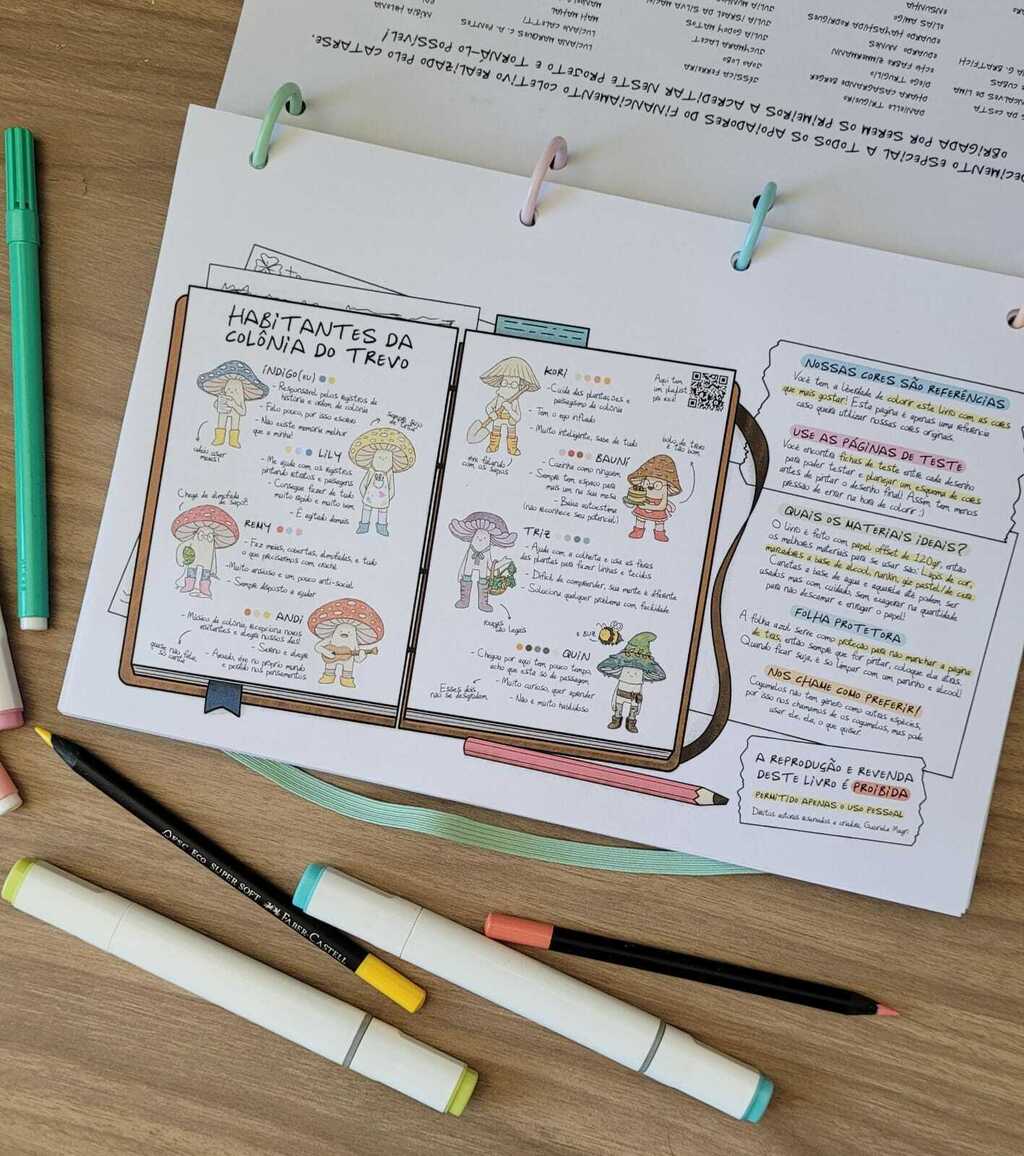 DECIMENTO ESPECIAL A TODOS OS APOIADORES DO FINANCIAMENTO COLETIVO REALIZADO PELO CATARSE.
OBRIGADA POR SEREM OS PRIMEIROS A ACREDITAR NESTE PROJETO E TORNÁ-LO POSSÍVEL!
DANIELLE TRIGUEIRO
DHARA CASAGRANDE BERGER
DIEGO TRUGILIO
EDUARDO HAYASHIDA RODRIGUES
ELIAS AMIGO
JÉSSICA FERREIRA
JOÃO LOBO
JUCYMARA LACET
JULIA GODOY MATTOS
LUCIANA MARQUES C. A. PONTES
LUCIANI CALETTI
HABITANTES DA
COLÔNIA DO TREVO
ÍNDIGO (EU)
- Responsável pelos registros de
história e ordem da colônia
- Falo pouco, por isso escrevo
- Não existe memória melhor
que a minha!
odeio usar
meias!
LILY
- Me ajuda com os registros
pintando retratos e paisagens
- Consegue fazer de tudo
muito rápido e muito bem
- É agitado demais
Chega de almofada
de sapo!!
REMY
- Faz meias, cobertas, almofadas, e tudo
o que precisarmos com crochê
- Muito ansioso e um pouco anti-social
- Sempre disposto a ajudar
ANDI
- Músico da colônia, recepciona novos
visitantes e alegra nossos dias!
- Sereno e alegre
- Avoado, vive no próprio mundo
e perdido nos pensamentos
quase não fala,
só canta
KORI
- Cuida das plantações e
paisagismo da colônia
- Tem o ego inflado
- Muito inteligente, sabe de tudo
Aqui tem
um playlist
pra você!
vive falando
com os sapos
BAUNI
- Cozinha como ninguém
- Sempre tem espaço para
mais um na sua mesa
- Baixa autoestima
(não reconhece seu potencial)
bolo de trevo
é tão bom
TRIZ
- Ajuda com a colheita e usa as fibras
das plantas para fazer linhas e tecidos
- Difícil de compreender, sua mente é diferente
- Soluciona qualquer problema com facilidade
roupas
tão legais
QUIN
- Chegou por aqui tem pouco tempo,
acho que está só de passagem
- Muito curioso, quer aprender
- Não é muito habilidoso
Esses dois
não se desgrudam
NOSSAS CORES SÃO REFERÊNCIAS
Você tem a liberdade de colorir este livro com as cores
que mais gostar! Esta página é apenas uma referência
caso queira utilizar nossas cores originais.
USE AS PÁGINAS DE TESTE
Você encontra fichas de teste entre cada desenho
para poder testar e planejar um esquema de cores
antes de pintar o desenho final! Assim tem menos
pressão de errar na hora de colorir :)
QUAIS OS MATERIAIS IDEAIS?
O livro é feito com papel offset de 120gr, então
os melhores materiais para se usar são: Lápis de cor,
marcadores a base de álcool, nankin, giz pastel/de cera.
Canetas a base de água e aquarela até podem ser
usados mas com cuidado, sem exagerar na quantidade
para não descamar e enrugar o papel!
FOLHA PROTETORA
A folha azul serve como proteção para não manchar a página
de trás, então sempre que for pintar, coloque ela atrás.
Quando ficar suja, é só limpar com um paninho e álcool!
NOS CHAME COMO PREFERIR!
Cogumelos não tem gênero como outras espécies,
por isso nos chamamos de os cogumelos, mas pode
usar ele, ela, o que quiser.
A REPRODUÇÃO E REVENDA
DESTE LIVRO É PROIBIDA
PERMITIDO APENAS O USO PESSOAL
ECO SUPER SOFT FABER CASTELL